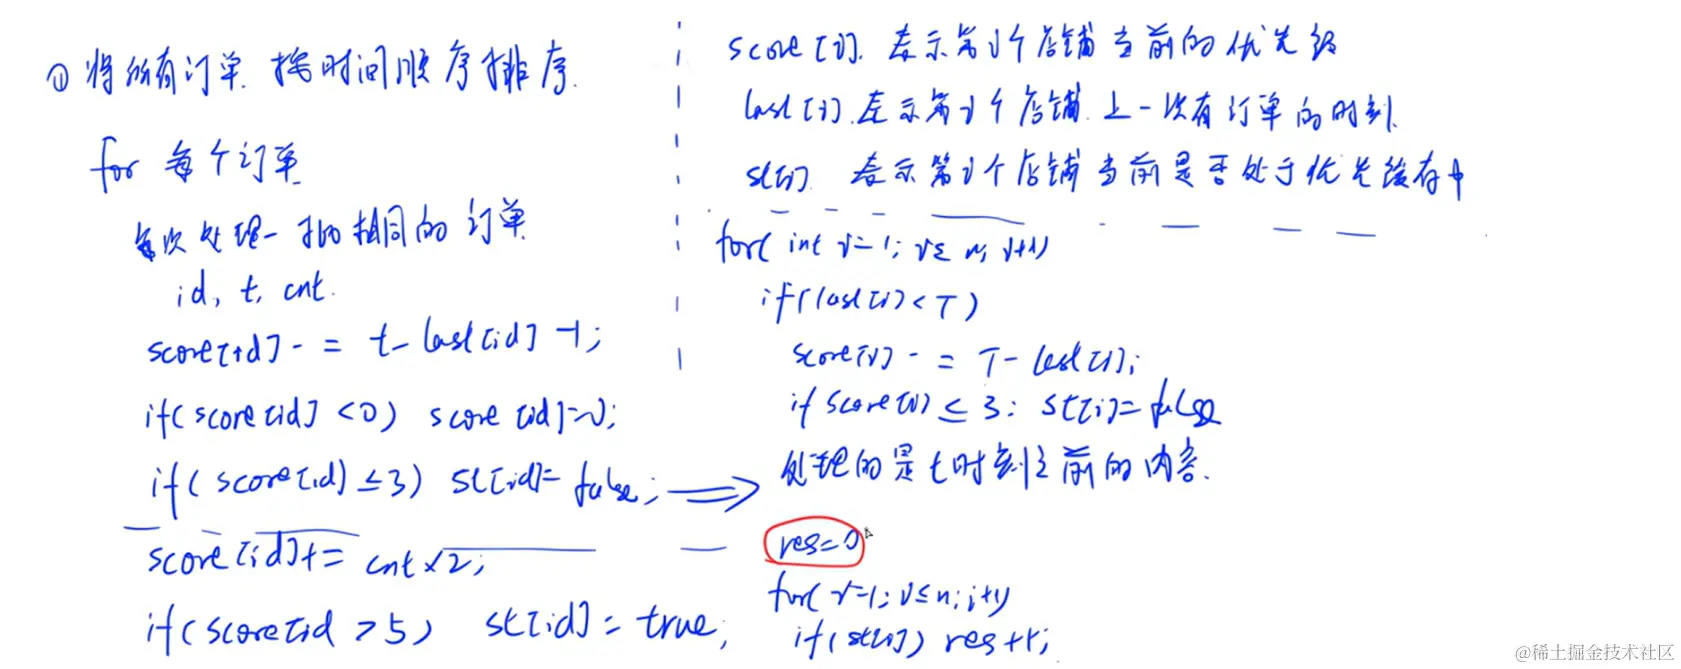 ① 将所有订单 按时间顺序排序.
for 每个订单
每次处理一批相同的订单
id, t, cnt.
score[id] -= t - last[id] - 1;
if(score[id] <0) score[id]=0;
if(score[id] ≤3) st[id]= false;
score[id]+= cnt×2;
if(score[id >5) st[id] = true;
score[i]. 表示第i个店铺当前的优先级
last[i].表示第i个店铺.上一次有订单的时刻.
st[i]. 表示第i个店铺当前是否处于优先缓存中
for( int i=1; i≤ n; i++)
if(last[i]<T)
score[i] -= T-last[i];
if score[i] ≤3: st[i]=false
处理的是t时刻之前的内容.
res=0
for(i=1; i≤n; i++)
if(st[i]) res++;
@稀土掘金技术社区